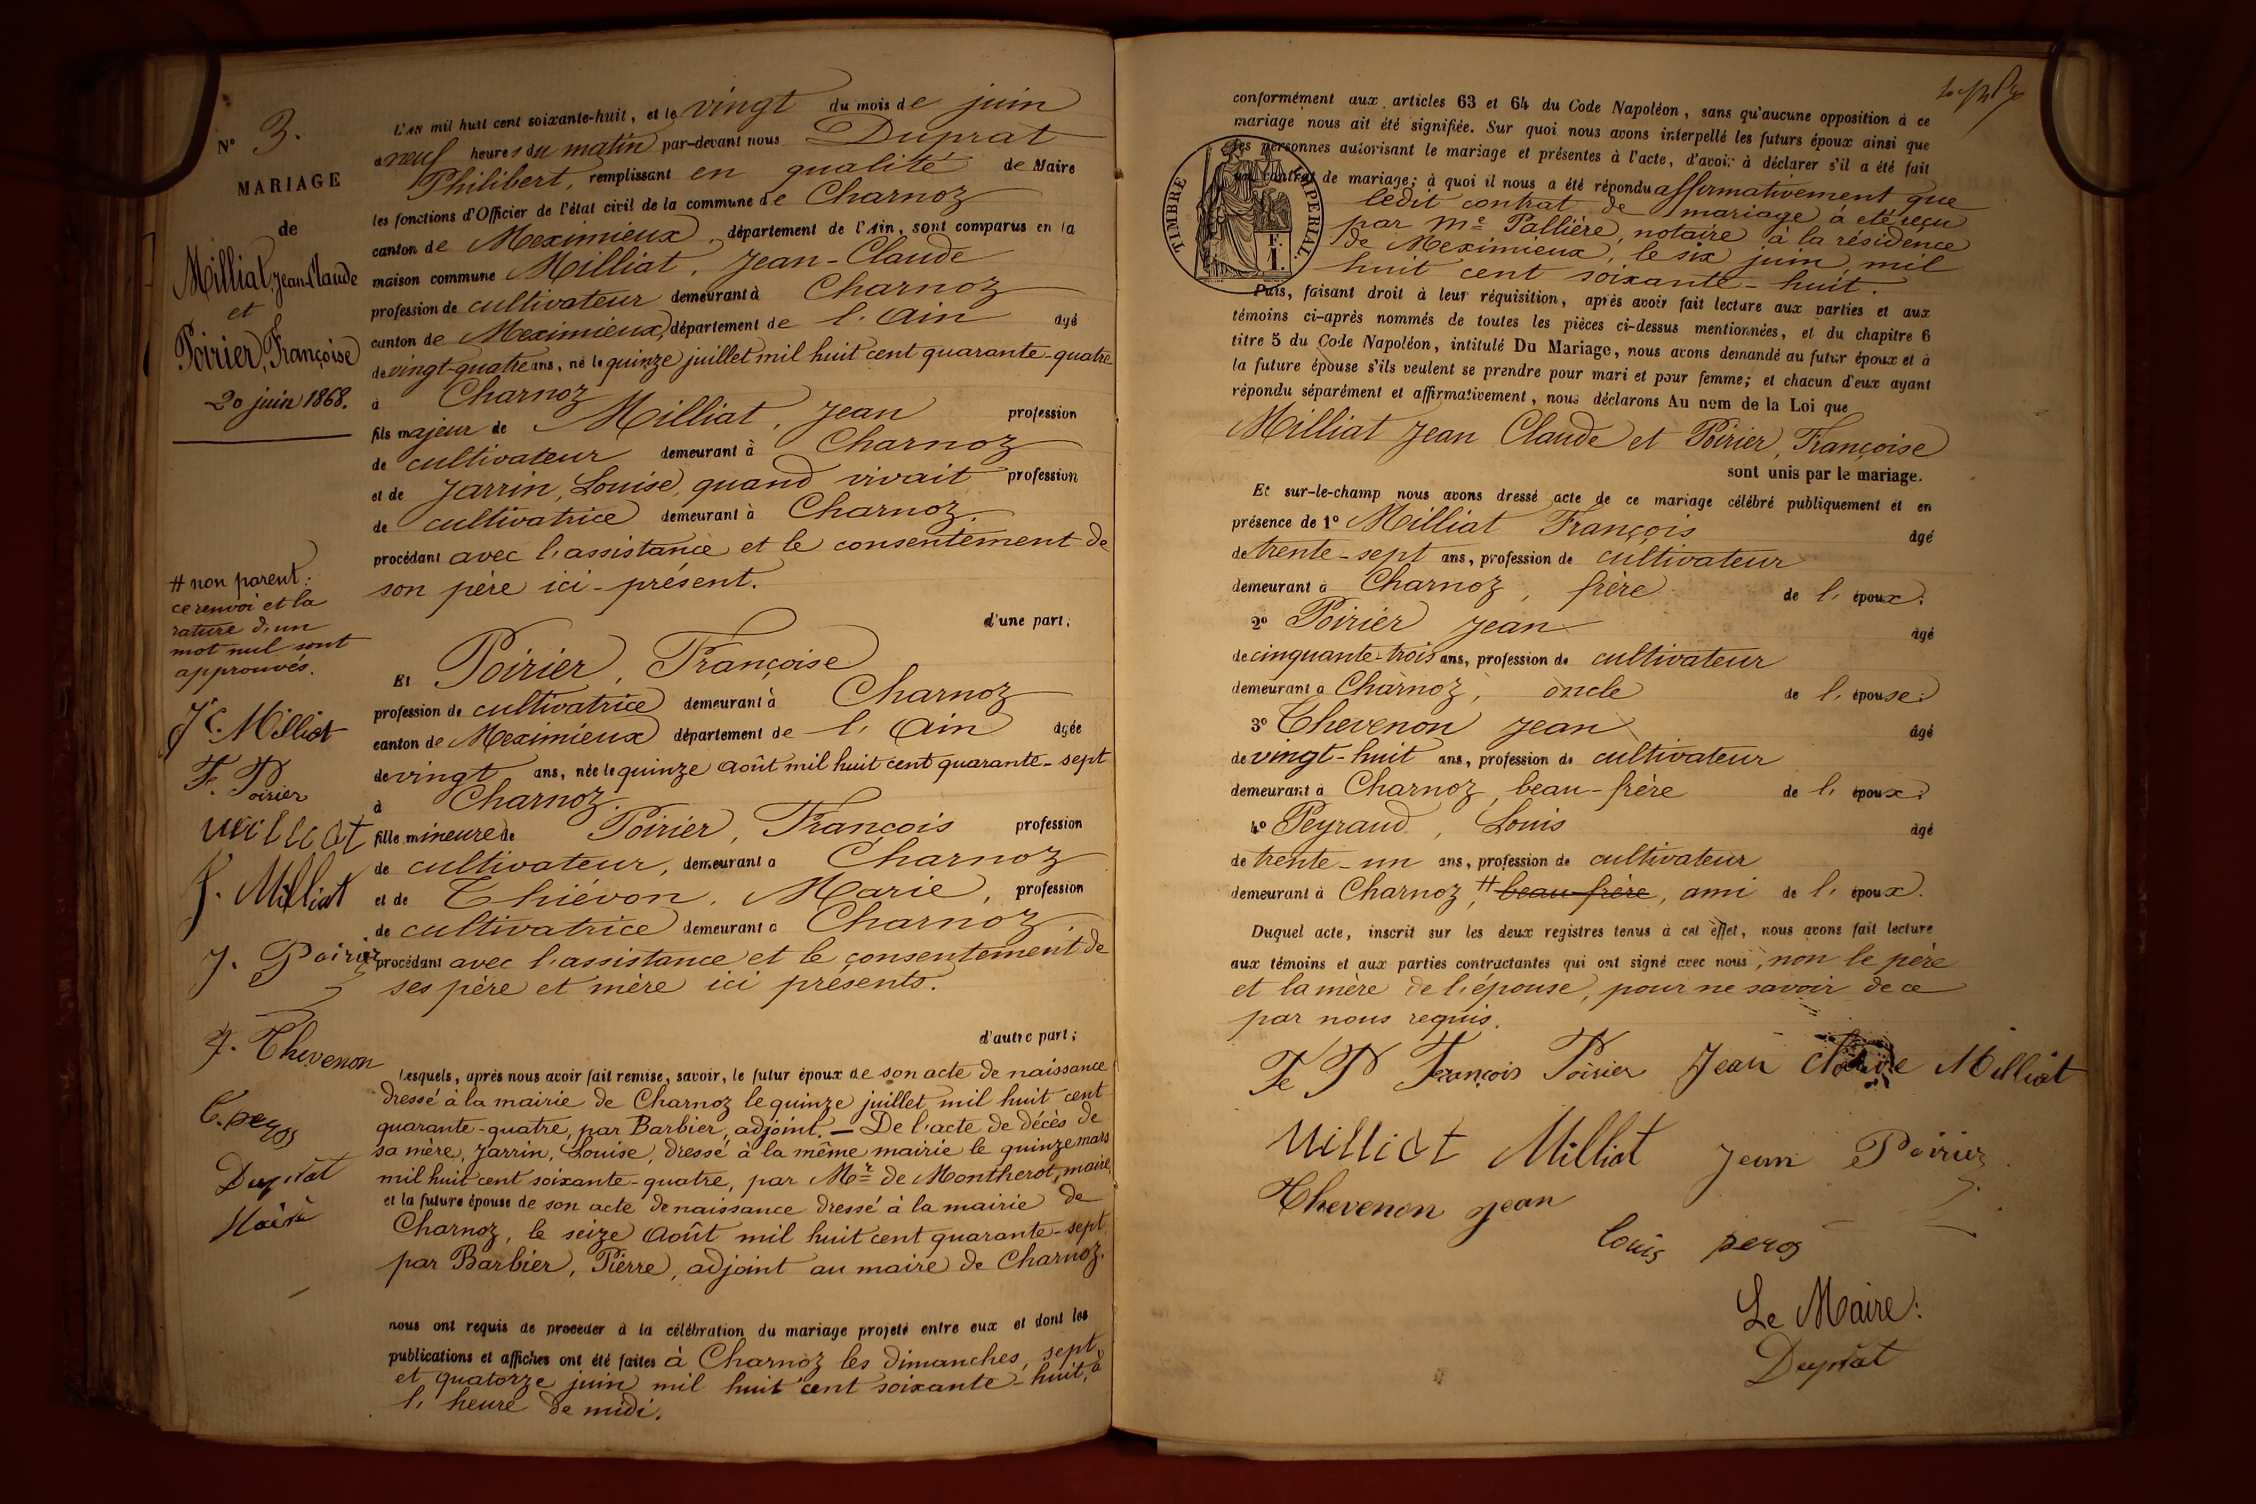 N° 3.
MARIAGE
de
Milliat, Jean-Claude
et
Poirier, Françoise
20 juin 1868.
# non parent:
ce renvoi et la
rature d'un
mot nul sont
approuvés.
J C. Milliat
F. Poirier
Milliat
f. Milliat
J. Poirier
J. Thevenon
Duprat
Maire
L'AN mil huit cent soixante-huit, et le vingt du mois de juin
à neuf heures du matin par-devant nous Duprat
Philibert, remplissant en qualité de Maire
les fonctions d'Officier de l'état civil de la commune de Charnoz
canton de Meximieux, département de l'Ain, sont comparus en la
maison commune Milliat, Jean-Claude
profession de cultivateur demeurant à Charnoz
canton de Meximieux, département de l'Ain âgé
de vingt-quatre ans, né le quinze juillet mil huit cent quarante-quatre
à Charnoz
fils majeur de Milliat, Jean profession
de cultivateur demeurant à Charnoz
et de Jarrin, Louise, quand vivait profession
de cultivatrice demeurant à Charnoz
procédant avec l'assistance et le consentement de
son père ici-présent.
d'une part;
Et Poirier, Françoise
profession de cultivatrice demeurant à Charnoz
canton de Meximieux département de l'Ain âgée
de vingt ans, née le quinze août mil huit cent quarante-sept
à Charnoz.
fille mineure de Poirier, François profession
de cultivateur, demeurant à Charnoz
et de Thiévon, Marie, profession
de cultivatrice demeurant à Charnoz
procédant avec l'assistance et le consentement de
ses père et mère ici présents.
d'autre part;
Lesquels, après nous avoir fait remise, savoir, le futur époux de son acte de naissance
dressé à la mairie de Charnoz le quinze juillet mil huit cent
quarante-quatre, par Barbier, adjoint. — De l'acte de décès de
sa mère, Jarrin, Louise, dressé à la même mairie le quinze mars
mil huit cent soixante-quatre, par Mr de Montherot, maire,
et la future épouse de son acte de naissance dressé à la mairie de
Charnoz, le seize août mil huit cent quarante-sept
par Barbier, Pierre, adjoint au maire de Charnoz.
nous ont requis de procéder à la célébration du mariage projeté entre eux et dont les
publications et affiches ont été faites à Charnoz les dimanches, sept
et quatorze juin mil huit cent soixante-huit, à
l'heure de midi.
conformément aux articles 63 et 64 du Code Napoléon, sans qu'aucune opposition à ce
mariage nous ait été signifiée. Sur quoi nous avons interpellé les futurs époux ainsi que
les personnes autorisant le mariage et présentes à l'acte, d'avoir à déclarer s'il a été fait
un contrat de mariage; à quoi il nous a été répondu affirmativement que
ledit contrat de mariage a été reçu
par Me Pallière, notaire à la résidence
de Meximieux, le six juin mil
huit cent soixante-huit.
TIMBRE IMPERIAL.
F.
1.
Puis, faisant droit à leur réquisition, après avoir fait lecture aux parties et aux
témoins ci-après nommés de toutes les pièces ci-dessus mentionnées, et du chapitre 6
titre 5 du Code Napoléon, intitulé Du Mariage, nous avons demandé au futur époux et à
la future épouse s'ils veulent se prendre pour mari et pour femme; et chacun d'eux ayant
répondu séparément et affirmativement, nous déclarons Au nom de la Loi que
Milliat Jean Claude et Poirier, Françoise
sont unis par le mariage.
Et sur-le-champ nous avons dressé acte de ce mariage célébré publiquement et en
présence de 1° Milliat François âgé
de trente-sept ans, profession de cultivateur
demeurant à Charnoz, frère de l'époux.
2° Poirier Jean âgé
de cinquante-trois ans, profession de cultivateur
demeurant à Charnoz, oncle de l'épouse.
3° Thevenon Jean âgé
de vingt-huit ans, profession de cultivateur
demeurant à Charnoz beau-frère de l'époux.
4° Peyraud, Louis âgé
de trente-un ans, profession de cultivateur
demeurant à Charnoz, # beau-frère, ami de l'époux.
Duquel acte, inscrit sur les deux registres tenus à cet effet, nous avons fait lecture
aux témoins et aux parties contractantes qui ont signé avec nous, non le père
et la mère de l'épouse, pour ne savoir de ce
par nous requis.
Fe P François Poirier Jean Claude Milliat
Milliat Milliat Jean Poirier
Thevenon Jean
Louis peros
Le Maire:
Duprat